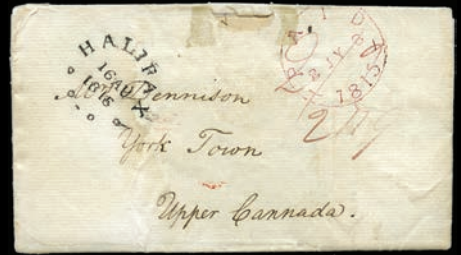 HALIFAX
16 AU
1815
PAID
8 JY 8
1815
2/4
Mr Dennison
York Town
Upper Cannada.